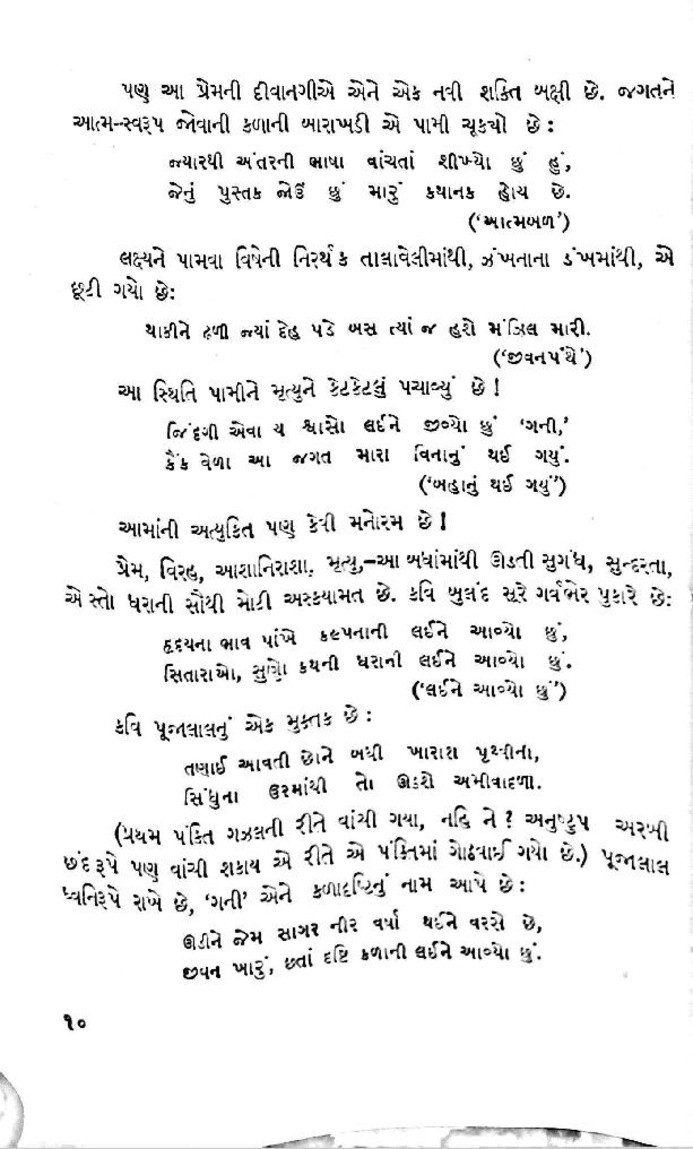 પણ આ પ્રેમની દીવાનગીએ એને એક નવી શક્તિ બક્ષી છે. જગતને
આત્મ-સ્વરૂપ જોવાની કળાની બારાખડી એ પામી ચૂક્યો છે :
જ્યારથી અંતરની ભાષા વાંચતાં શીખ્યો છું હું,
જેનું પુસ્તક જોઉં છું મારું કથાનક હોય છે.
(‘આત્મબળ’)
લક્ષ્યને પામવા વિષેની નિરર્થક તાલાવેલીમાંથી, ઝંખનાના ડંખમાંથી, એ
છૂટી ગયો છે:
થાકીને ઢળી જ્યાં દેહ પડે બસ ત્યાં જ હશે મંઝિલ મારી.
(‘જીવનપંથે’)
આ સ્થિતિ પામીને મૃત્યુને કેટકેટલું પચાવ્યું છે !
જિંદગી એવા ય શ્વાસો લઈને જીવ્યો છું ‘ગની,’
કૈંક વેળા આ જગત મારા વિનાનું થઈ ગયું.
(‘બહાનું થઈ ગયું’)
આમાંની અત્યુક્તિ પણ કેવી મનોરમ છે !
પ્રેમ, વિરહ, આશાનિરાશા, મૃત્યુ,–આ બધાંમાંથી ઊડતી સુગંધ, સુન્દરતા,
એ સ્તો ધરાની સૌથી મોટી અસ્કયામત છે. કવિ બુલંદ સૂરે ગર્વભેર પુકારે છે:
હૃદયના ભાવ પાંખે કલ્પનાની લઈને આવ્યો છું,
સિતારાઓ, સુણો કથની ધરાની લઈને આવ્યો છું.
(‘લઈને આવ્યો છું’)
કવિ પૂજાલાલનું એક મુક્તક છે :
તણાઈ આવતી છોને બધી ખારાશ પૃથ્વીના,
સિંધુના ઉરમાંથી તો ઊડશે અમીવાદળા.
(પ્રથમ પંક્તિ ગઝલની રીતે વાંચી ગયા, નહિ ને ? અનુષ્ટુપ અરબી
છંદરૂપે પણ વાંચી શકાય એ રીતે એ પંક્તિમાં ગોઠવાઈ ગયો છે.) પૂજાલાલ
ધ્વનિરૂપે રાખે છે, ‘ગની’ એને કળાદૃષ્ટિનું નામ આપે છે :
ઊડીને જેમ સાગર નીર વર્ષા થઈને વરસે છે,
જીવન ખારું, છતાં દૃષ્ટિ કળાની લઈને આવ્યો છું.
૧૦